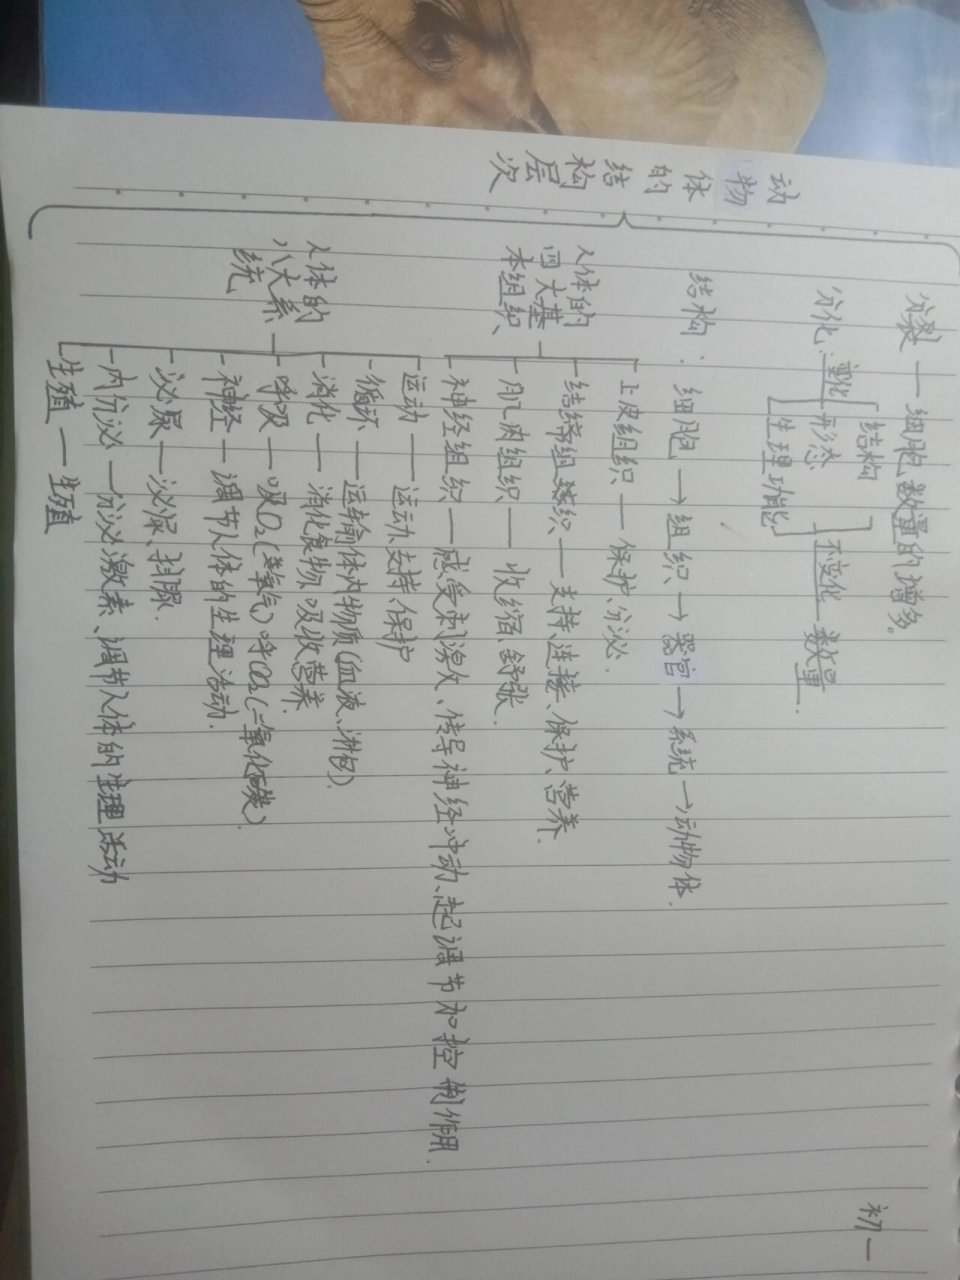 动物体的结构层次
分裂—细胞数量的增多。
分化
变化
结构
形态
生理功能
不变化—数量.
结构：细胞→组织→器官→系统→动物体.
人体的四大基本组织
上皮组织—保护、分泌.
结缔组织—支持、连接、保护、营养.
肌肉组织—收缩、舒张.
神经组织—感受刺激、传导神经冲动、起调节和控制作用.
人体的八大系统
运动—运动、支持、保护
循环—运输体内物质(血液、淋包).
消化—消化食物、吸收营养.
呼吸—吸O₂(氧气)呼CO₂(二氧化碳).
神经—调节人体的生理活动.
泌尿—泌尿、排尿.
内分泌—分泌激素、调节人体的生理活动
生殖—生殖
初一